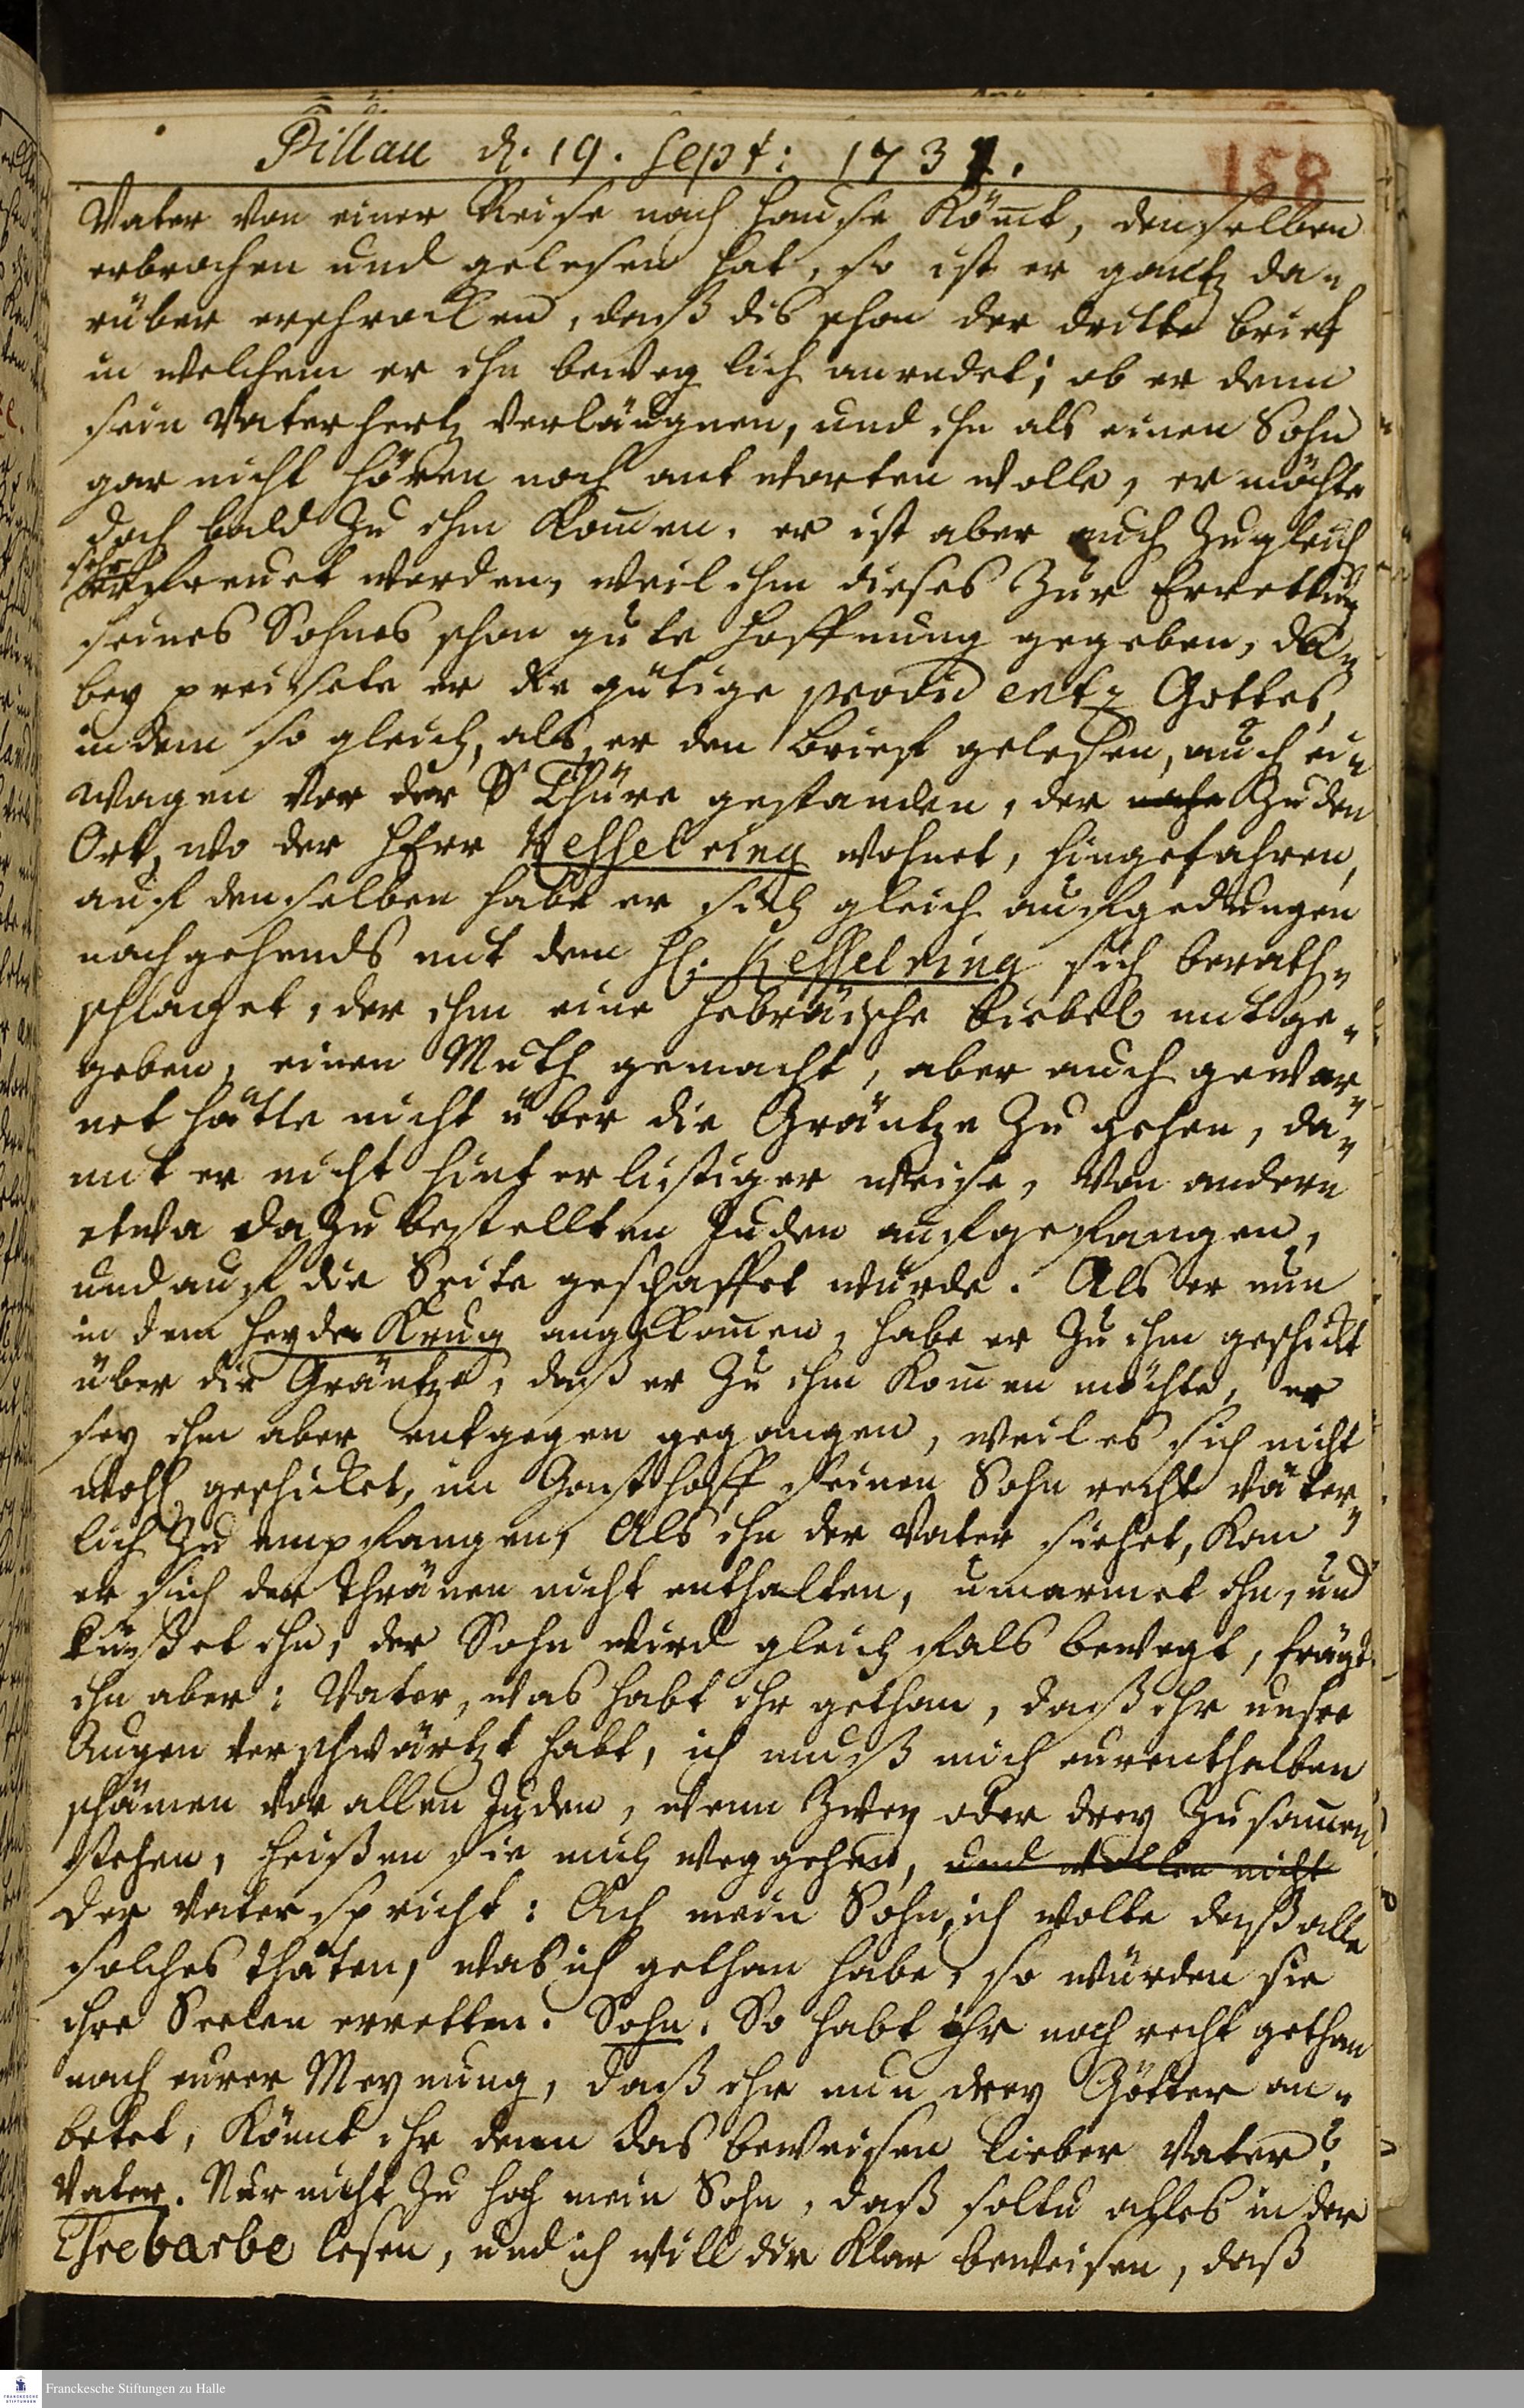 Pillau d. 19. Sept: 1731.
158
Vater von einer Reise nach Hause kömt, denselben
erbrochen und gelesen hat, so ist er gantz da-
rüber erschrocken, daß dis schon der dritte brief
in welchem er ihn beweglich anredet; ob er denn
sein Vaterhertz verläugnen, und ihn als einen Sohn
gar nicht hören noch antworten wolle, er möchte
doch bald zu ihm komen. er ist aber auch zugleich
sehr
erfreuet worden, weil ihm dieses zur Errettung
seines Sohnes schon gute Hoffnung gegeben, da-
bey preisete er die gütige providentz Gottes,
indem so gleich, als er den Brief gelesen, auch ein
Wagen vor der Thüre gestanden, der nahe zu den
Ort, wo der HErr Kesselring wohnet, hingefahren,
auf denselben habe er sich gleich aufgedungen
nachgehends mit dem H. Kesselring sich berath-
schlaget, der ihm eine Hebräische Biebel mitge-
geben, einen Muth gemacht, aber auch gewar-
net hätte nicht über die Gräntze zu gehen, da-
mit er nicht hinterlistiger weise, von andern
etwa dazu bestellten Juden aufgefangen,
und auf die Seite geschaffet würde. Als er nun
in dem Heyde Krug angekomen, habe er zu ihm geschickt
über die Gräntze, daß er zu ihm komen möchte, er
sey ihm aber entgegen gegangen, weil es sich nicht
wohl geschicket, im Gasthoff seinen Sohn recht väter-
lich zu empfangen, Als ihn der Vater siehet, kan
er sich der thränen nicht enthalten, umarmet ihn, und
küßet ihn, der Sohn wird gleichfals bewegt, frägt
ihn aber: Vater, was habt ihr gethan, daß ihr unsre
Augen verschwärtzt habt, ich muß mich eurenthalben
schämen vor allen Juden, wenn zwey oder drey zusamen
stehen, heißen sie mich weggehen, und wollen nicht
der Vater spricht: Ach mein Sohn, ich wolte daß alle
solches thäten, was ich gethan habe, so würden sie
ihre Seelen erretten. Sohn. So habt ihr noch recht gethan
nach eurer Meynung, daß ihr nun drey Götter an-
betet, könnt ihr denn das beweisen lieber Vater?
Vater. Nur nicht zu hoch mein Sohn, daß soltu alles in der
Esrebarbe lesen, und ich will dir klar beweisen, daß
Franckesche Stiftungen zu Halle